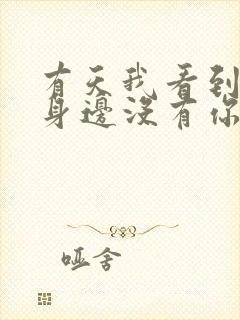 有天我看到
身邊沒有你
哑舍